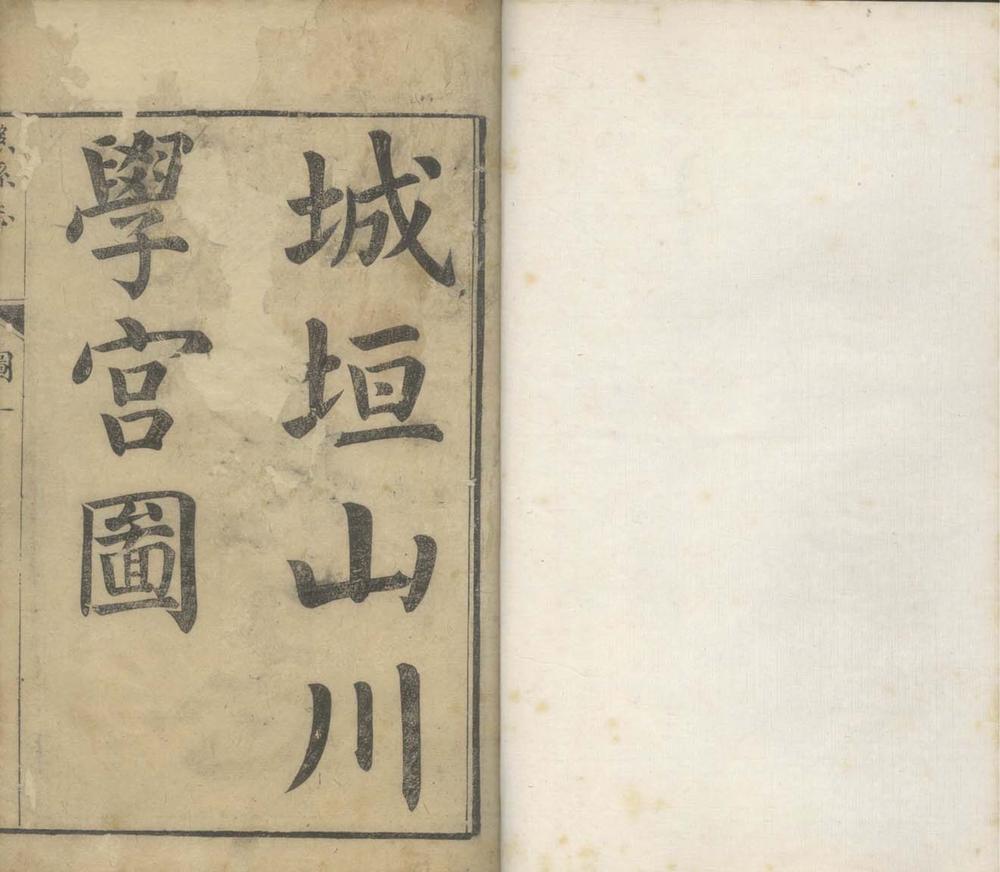 城垣山川
學宮圖
圖
一